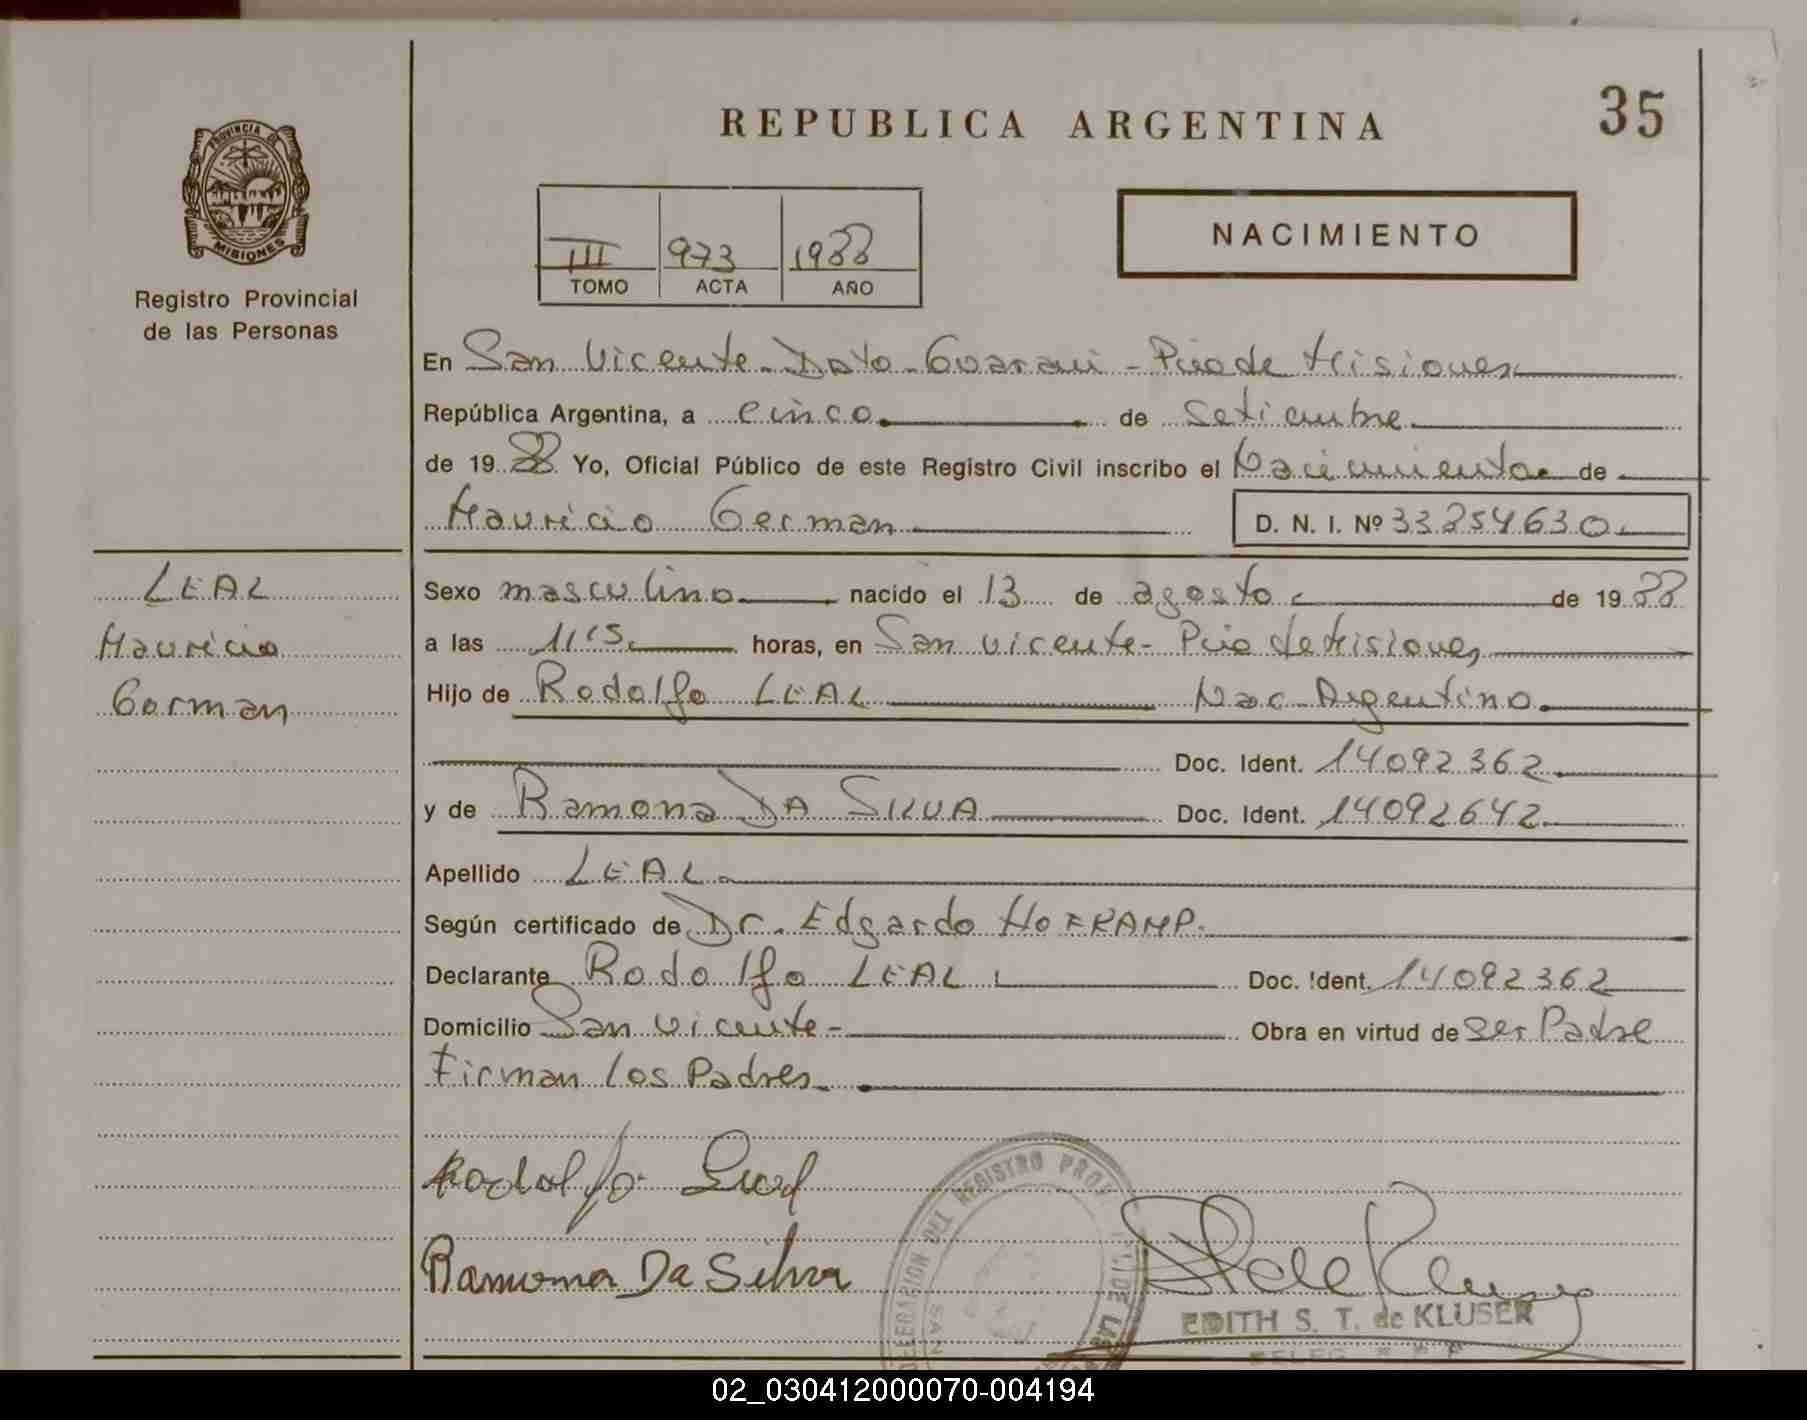 PROVINCIA DE
MISIONES
Registro Provincial
de las Personas
REPUBLICA ARGENTINA
35
III 973 1988
TOMO ACTA AÑO
NACIMIENTO
En San Vicente - Dpto - Guarani - Pcia de Misiones
República Argentina, a cinco de Setiembre
de 1988 Yo, Oficial Público de este Registro Civil inscribo el Nacimiento de
Mauricio German D. N. I. Nº 33254630
LEAL
Mauricio
German
Sexo masculino nacido el 13 de agosto de 1988
a las 1115 horas, en San Vicente - Pcia de Misiones
Hijo de Rodolfo LEAL Nac. Argentino
Doc. Ident. 14092362
y de Ramona DA SILVA Doc. Ident. 14092642
Apellido LEAL
Según certificado de Dr. Edgardo HOFKAMP.
Declarante Rodolfo LEAL Doc. Ident. 14092362
Domicilio San Vicente - Obra en virtud de ser Padre
Firman los Padres
Rodolfo Leal
Ramona Da Silva
DELEGACION DEL REGISTRO PROV DE LAS
SAN
EDITH S. T. de KLUSER
02_030412000070-004194